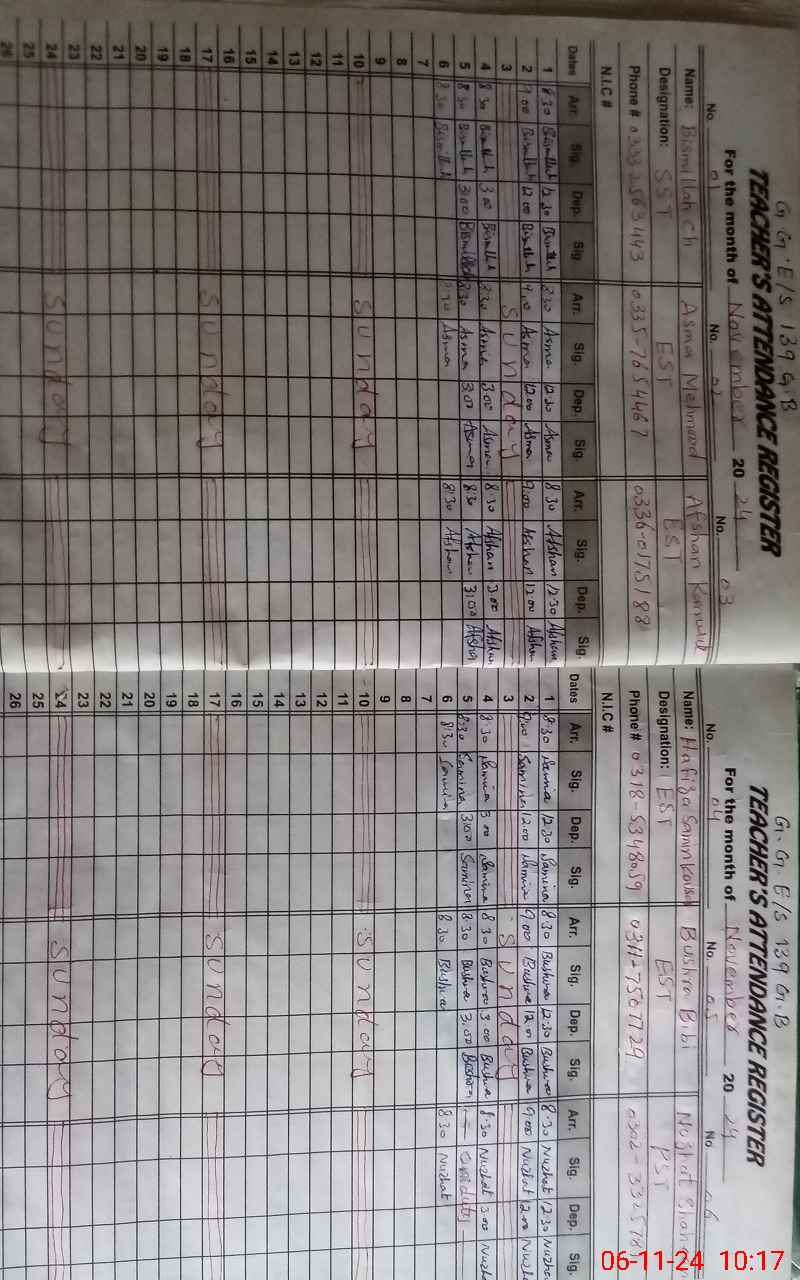 G.G.E/S 139 G.B
TEACHER'S ATTENDANCE REGISTER
For the month of November 20 24
No. 01 No. 02 No. 03
Name: Bismillah Ch Asma Mehmood Afshan
Designation: SST EST EST
Phone # 03332563443 0335-7654467 0336-0175188
N.I.C #
Dates Arr. Sig. Dep. Sig. Arr. Sig. Dep. Sig. Arr. Sig. Dep. Sig.
1 8:30 Bismillah 12:30 Bismillah 8:30 Asma 12:30 Asma 8:30 Afshan 12:30 Afshan
2 9:00 Bismillah 12:00 Bismillah 9:00 Asma 12:00 Asma 9:00 Afshan 12:00 Afshan
3 Sunday
4 8:30 Bismillah 3:00 Bismillah 8:30 Asma 3:00 Asma 8:30 Afshan 3:00 Afshan
5 8:30 Bismillah 3:00 Bismillah 8:30 Asma 3:00 Asma 8:30 Afshan 3:00 Afshan
6 8:30 Bismillah 8:30 Asma 8:30 Afshan
7
8
9
10 Sunday
11
12
13
14
15
16
17 Sunday
18
19
20
21
22
23
24 Sunday
25
26
G.G.E/S 139 G.B
TEACHER'S ATTENDANCE REGISTER
For the month of November 20 24
No. 04 No. 05 No. 06
Name: Hafiza Bushra Bibi Nuzhat
Designation: EST EST PST
Phone # 0318-5348059 0311-7567729
N.I.C #
Dates Arr. Sig. Dep. Sig. Arr. Sig. Dep. Sig. Arr. Sig. Dep. Sig.
1 8:30 Samina 12:30 Samina 8:30 Bushra 12:30 Bushra 8:30 Nuzhat 12:30 Nuzhat
2 9:00 Samina 12:00 Samina 9:00 Bushra 12:00 Bushra 9:00 Nuzhat 12:00 Nuzha
3 Sunday
4 8:30 Samina 3:00 Samina 8:30 Bushra 3:00 Bushra 8:30 Nuzhat 3:00 Nuzh
5 8:30 Samina 3:00 Samina 8:30 Bushra 3:00 Bushra
6 8:30 Samina 8:30 Bushra 8:30 Nuzhat
7
8
9
10 Sunday
11
12
13
14
15
16
17 Sunday
18
19
20
21
22
23
24 Sunday
25
26
06-11-24 10:17